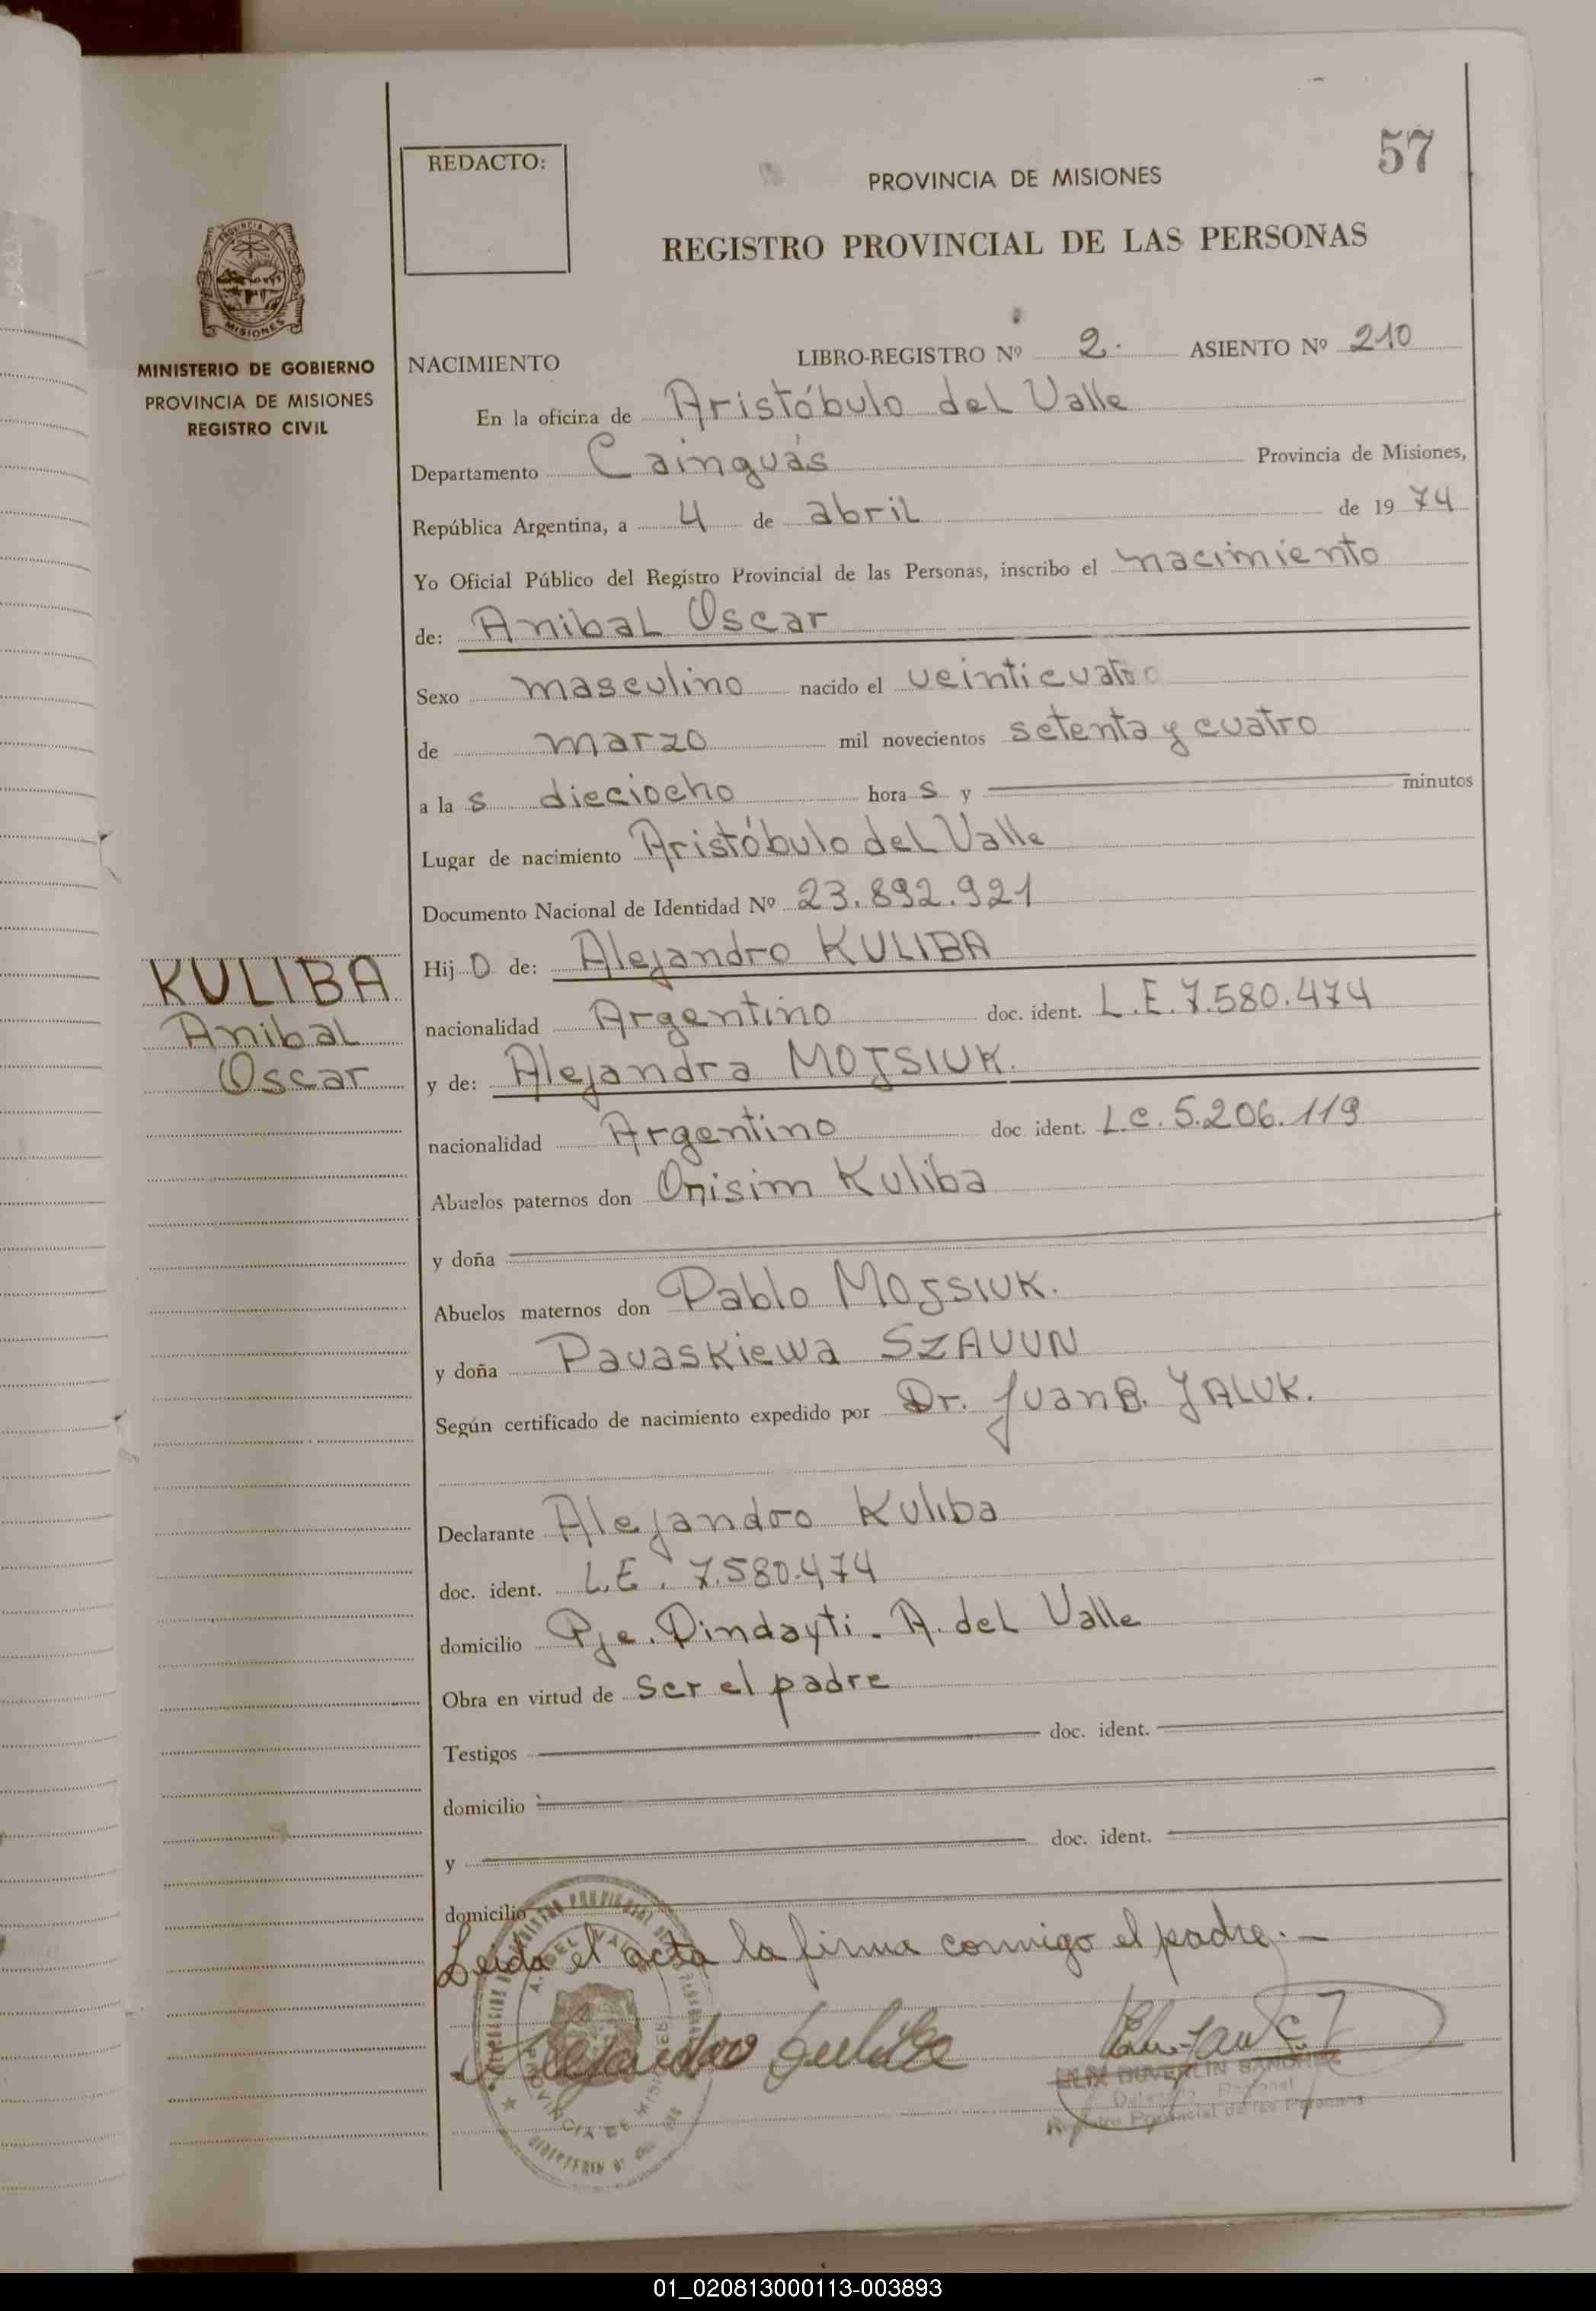 57
REDACTO:
PROVINCIA DE MISIONES
REGISTRO PROVINCIAL DE LAS PERSONAS
MISIONES
MINISTERIO DE GOBIERNO
PROVINCIA DE MISIONES
REGISTRO CIVIL
NACIMIENTO LIBRO-REGISTRO Nº 2. ASIENTO Nº 210
En la oficina de Aristóbulo del Valle
Departamento Cainguás Provincia de Misiones,
República Argentina, a 4 de abril de 19 74
Yo Oficial Público del Registro Provincial de las Personas, inscribo el nacimiento
de: Anibal Oscar
Sexo masculino nacido el veinticuatro
de marzo mil novecientos setenta y cuatro
a la s dieciocho hora s y minutos
Lugar de nacimiento Aristóbulo del Valle
Documento Nacional de Identidad Nº 23.892.921
Hij o de: Alejandro KULIBA
KULIBA
Anibal
Oscar
nacionalidad Argentino doc. ident. L.E. 7.580.474
y de: Alejandra MOJSIUK.
nacionalidad Argentino doc ident. L.C. 5.206.119
Abuelos paternos don Onisim Kuliba
y doña
Abuelos maternos don Pablo MOJSIUK.
y doña Pavaskiewa SZAUUN
Según certificado de nacimiento expedido por Dr. Juan B. JALUK.
Declarante Alejandro Kuliba
doc. ident. L.E. 7.580.474
domicilio Pje. Pindayti. A. del Valle
Obra en virtud de ser el padre
Testigos doc. ident.
domicilio
y doc. ident.
domicilio
Leida el acta la firma conmigo el padre.-
Alejandro Kuliba
Registro Provincial de las Personas
01_020813000113-003893